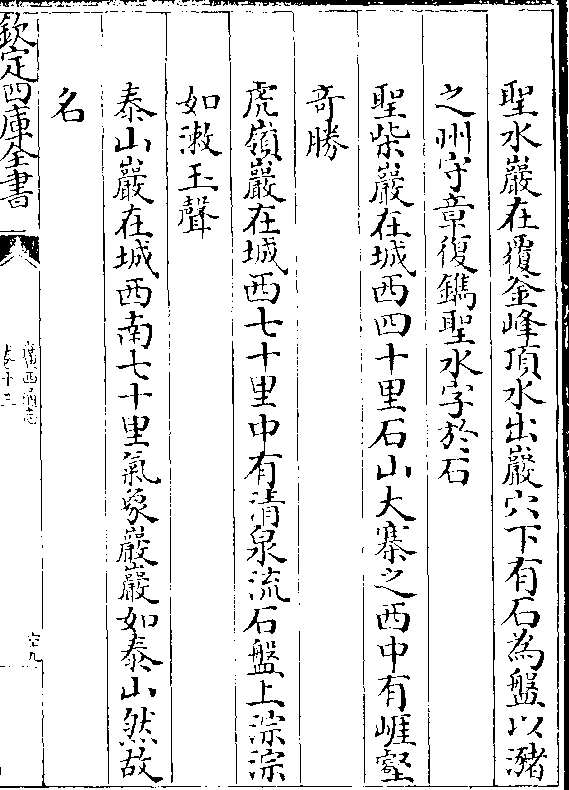 聖水巖在覆釜峰頂水出巖穴下有石為盤以瀦
之州守章復鐫聖水字於石
聖柴巖在城西四十里石山大寨之西中有崕壑
奇勝
虎嶺巖在城西七十里中有清泉流石盤上淙淙
如漱玉聲
泰山巖在城西南七十里氣象巖巖如泰山然故
名
欽定四庫全書
廣西通志
卷十三